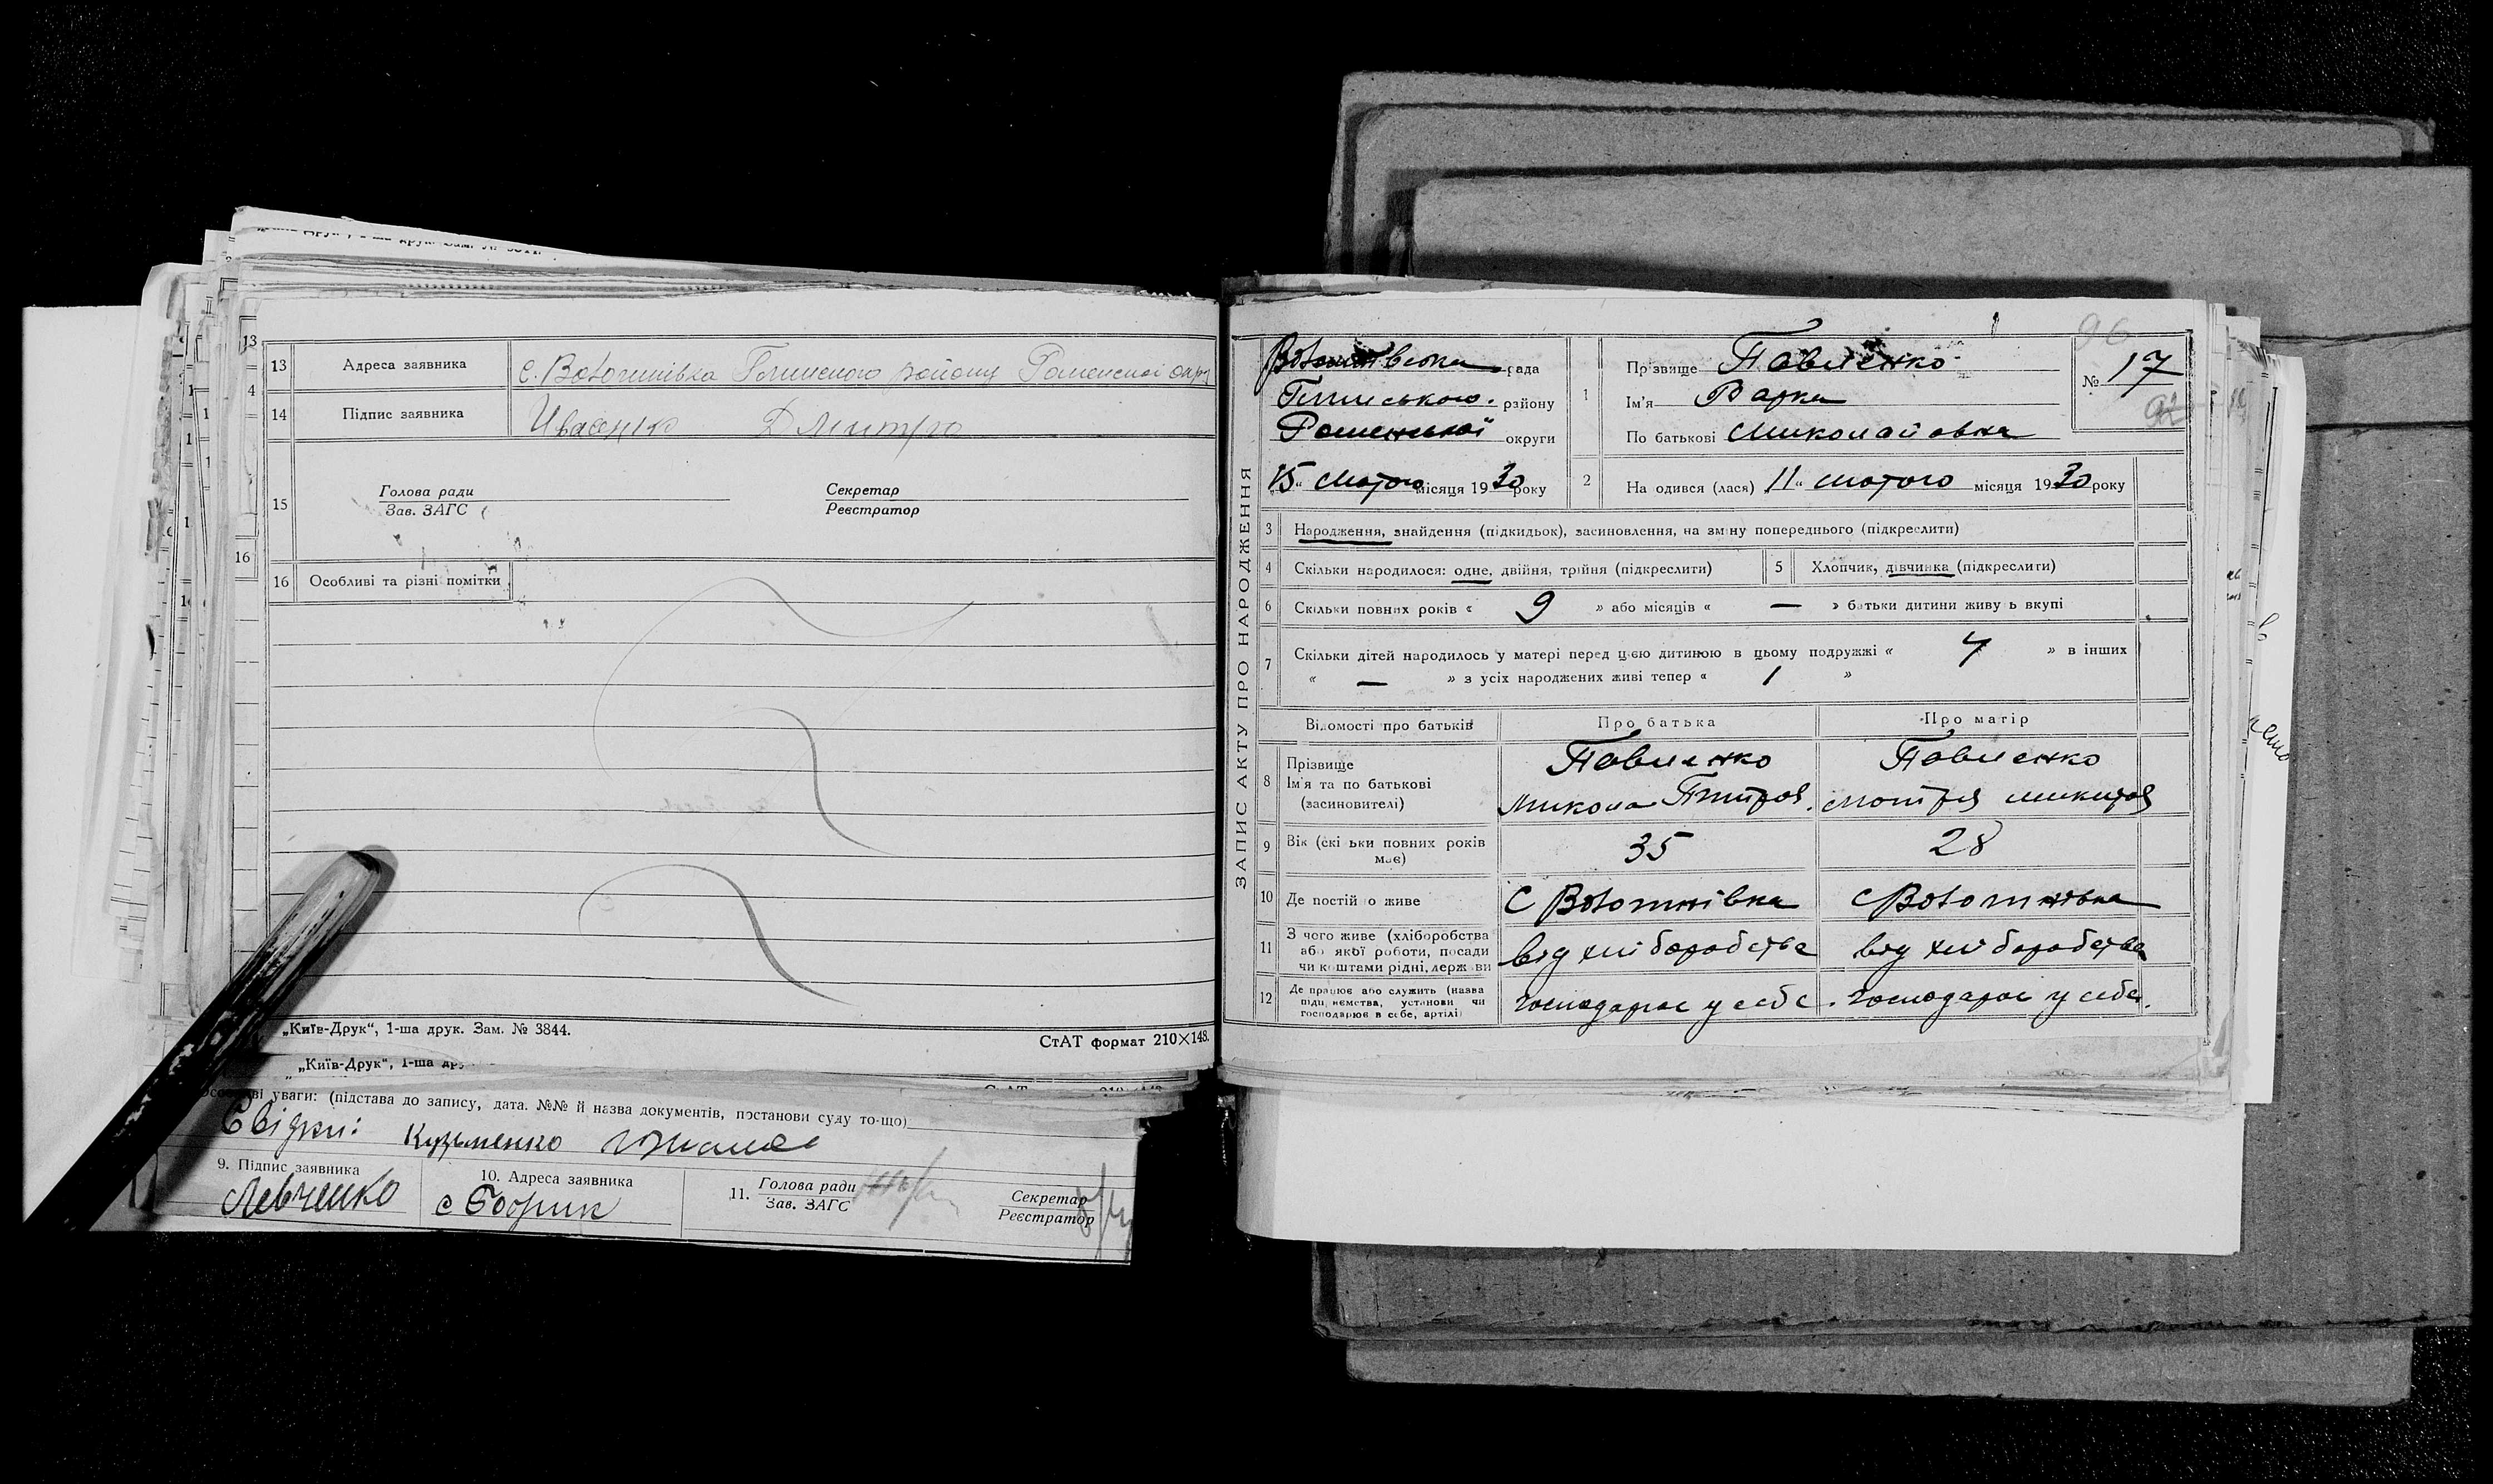 13 Адреса заявника с. Волошнівка Глинського району Роменської окр
14 Підпис заявника Иващенко Дмитро
15 Голова ради Секретар
Зав. ЗАГС Реєстратор
16 Особливі та різні помітки
„Київ-Друк“, 1-ша друк. Зам. № 3844.
СтАТ формат 210×148.
„Київ-Друк“, 1-ша дру
уваги: (підстава до запису, дата. №№ й назва документів, постанови суду то-що)
Свідки: Кузьменко
9. Підпис заявника 10. Адреса заявника 11. Голова ради Секретар
Зав. ЗАГС Реєстратор
Левченко с Бобрик
ЗАПИС АКТУ ПРО НАРОДЖЕННЯ
96
рада
Глинського району
Роменської округи
15 „ Лютого місяця 1930 року
1 Прізвище Павленко
Ім'я Варка
По батькові Миколайовна
№ 17
92
2 На одився (лася) 11 „ лютого місяця 1930 року
3 Народження, знайдення (підкидьок), засиновлення, на зміну попереднього (підкреслити)
4 Скільки народилося: одне, двійня, трійня (підкреслити) 5 Хлопчик, дівчинка (підкреслити)
6 Скільки повних років « 9 » або місяців « — » батьки дитини живу ь вкупі
7 Скільки дітей народилось у матері перед цією дитиною в цьому подружжі « 4 » в інших
« — » з усіх народжених живі тепер « 1 »
Відомості про батьків Про батька Про матір
8 Прізвище Павленко Павленко
Ім'я та по батькові
(засновителі) Микола Питров. мотря микитов
9 Вік (скі ьки повних років має) 35 28
10 Де постій о живе С Волошнівка С Волошнівка
11 З чого живе (хліборобства
або якої роботи, посади
чи коштами рідні, держ ви від хліборобства від хліборобства
12 Де працює або служить (назва
підп иємства, установи чи
господарює в себе, артілі) господарює у себе. господарює у себе.